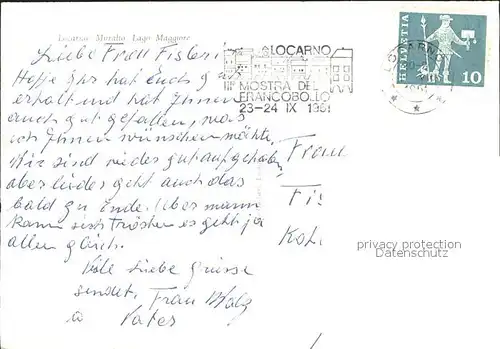 Locarno Muralto Lago Maggiore
Liebe Frau Fisler!
Hoffe Ihr hat euch gut
erholt und hat Ihnen
auch gut gefallen, was
ich Ihnen wünschen möchte,
Wir sind wieder gut aufgehoben
aber leider geht auch das
bald zu Ende. Aber mann
kann sich trösten es geht ja
allen gleich.
Viele liebe Grüsse
sendet, Frau
Vater
LOCARNO
MOSTRA DEL
FRANCOBOLLO
23-24 IX 1961
LOCARNO
HELVETIA
10
Frau
Fis
privacy protection
Datenschutz